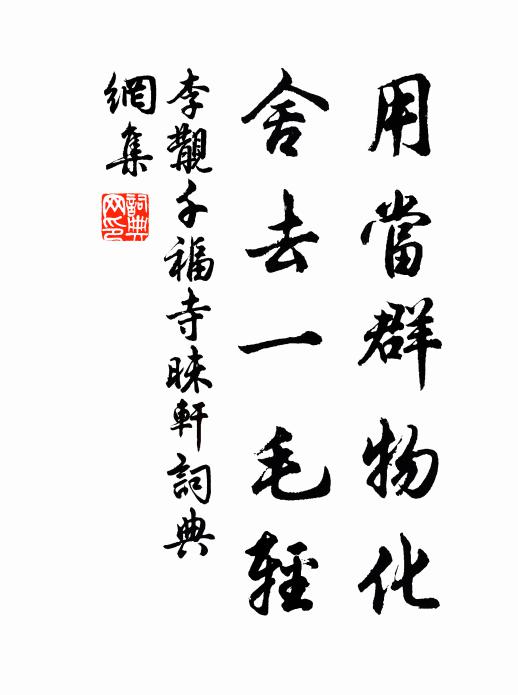 用當群物化
舍去一毛輕
李觀千福寺昧軒詞典
網集
詞典
网印